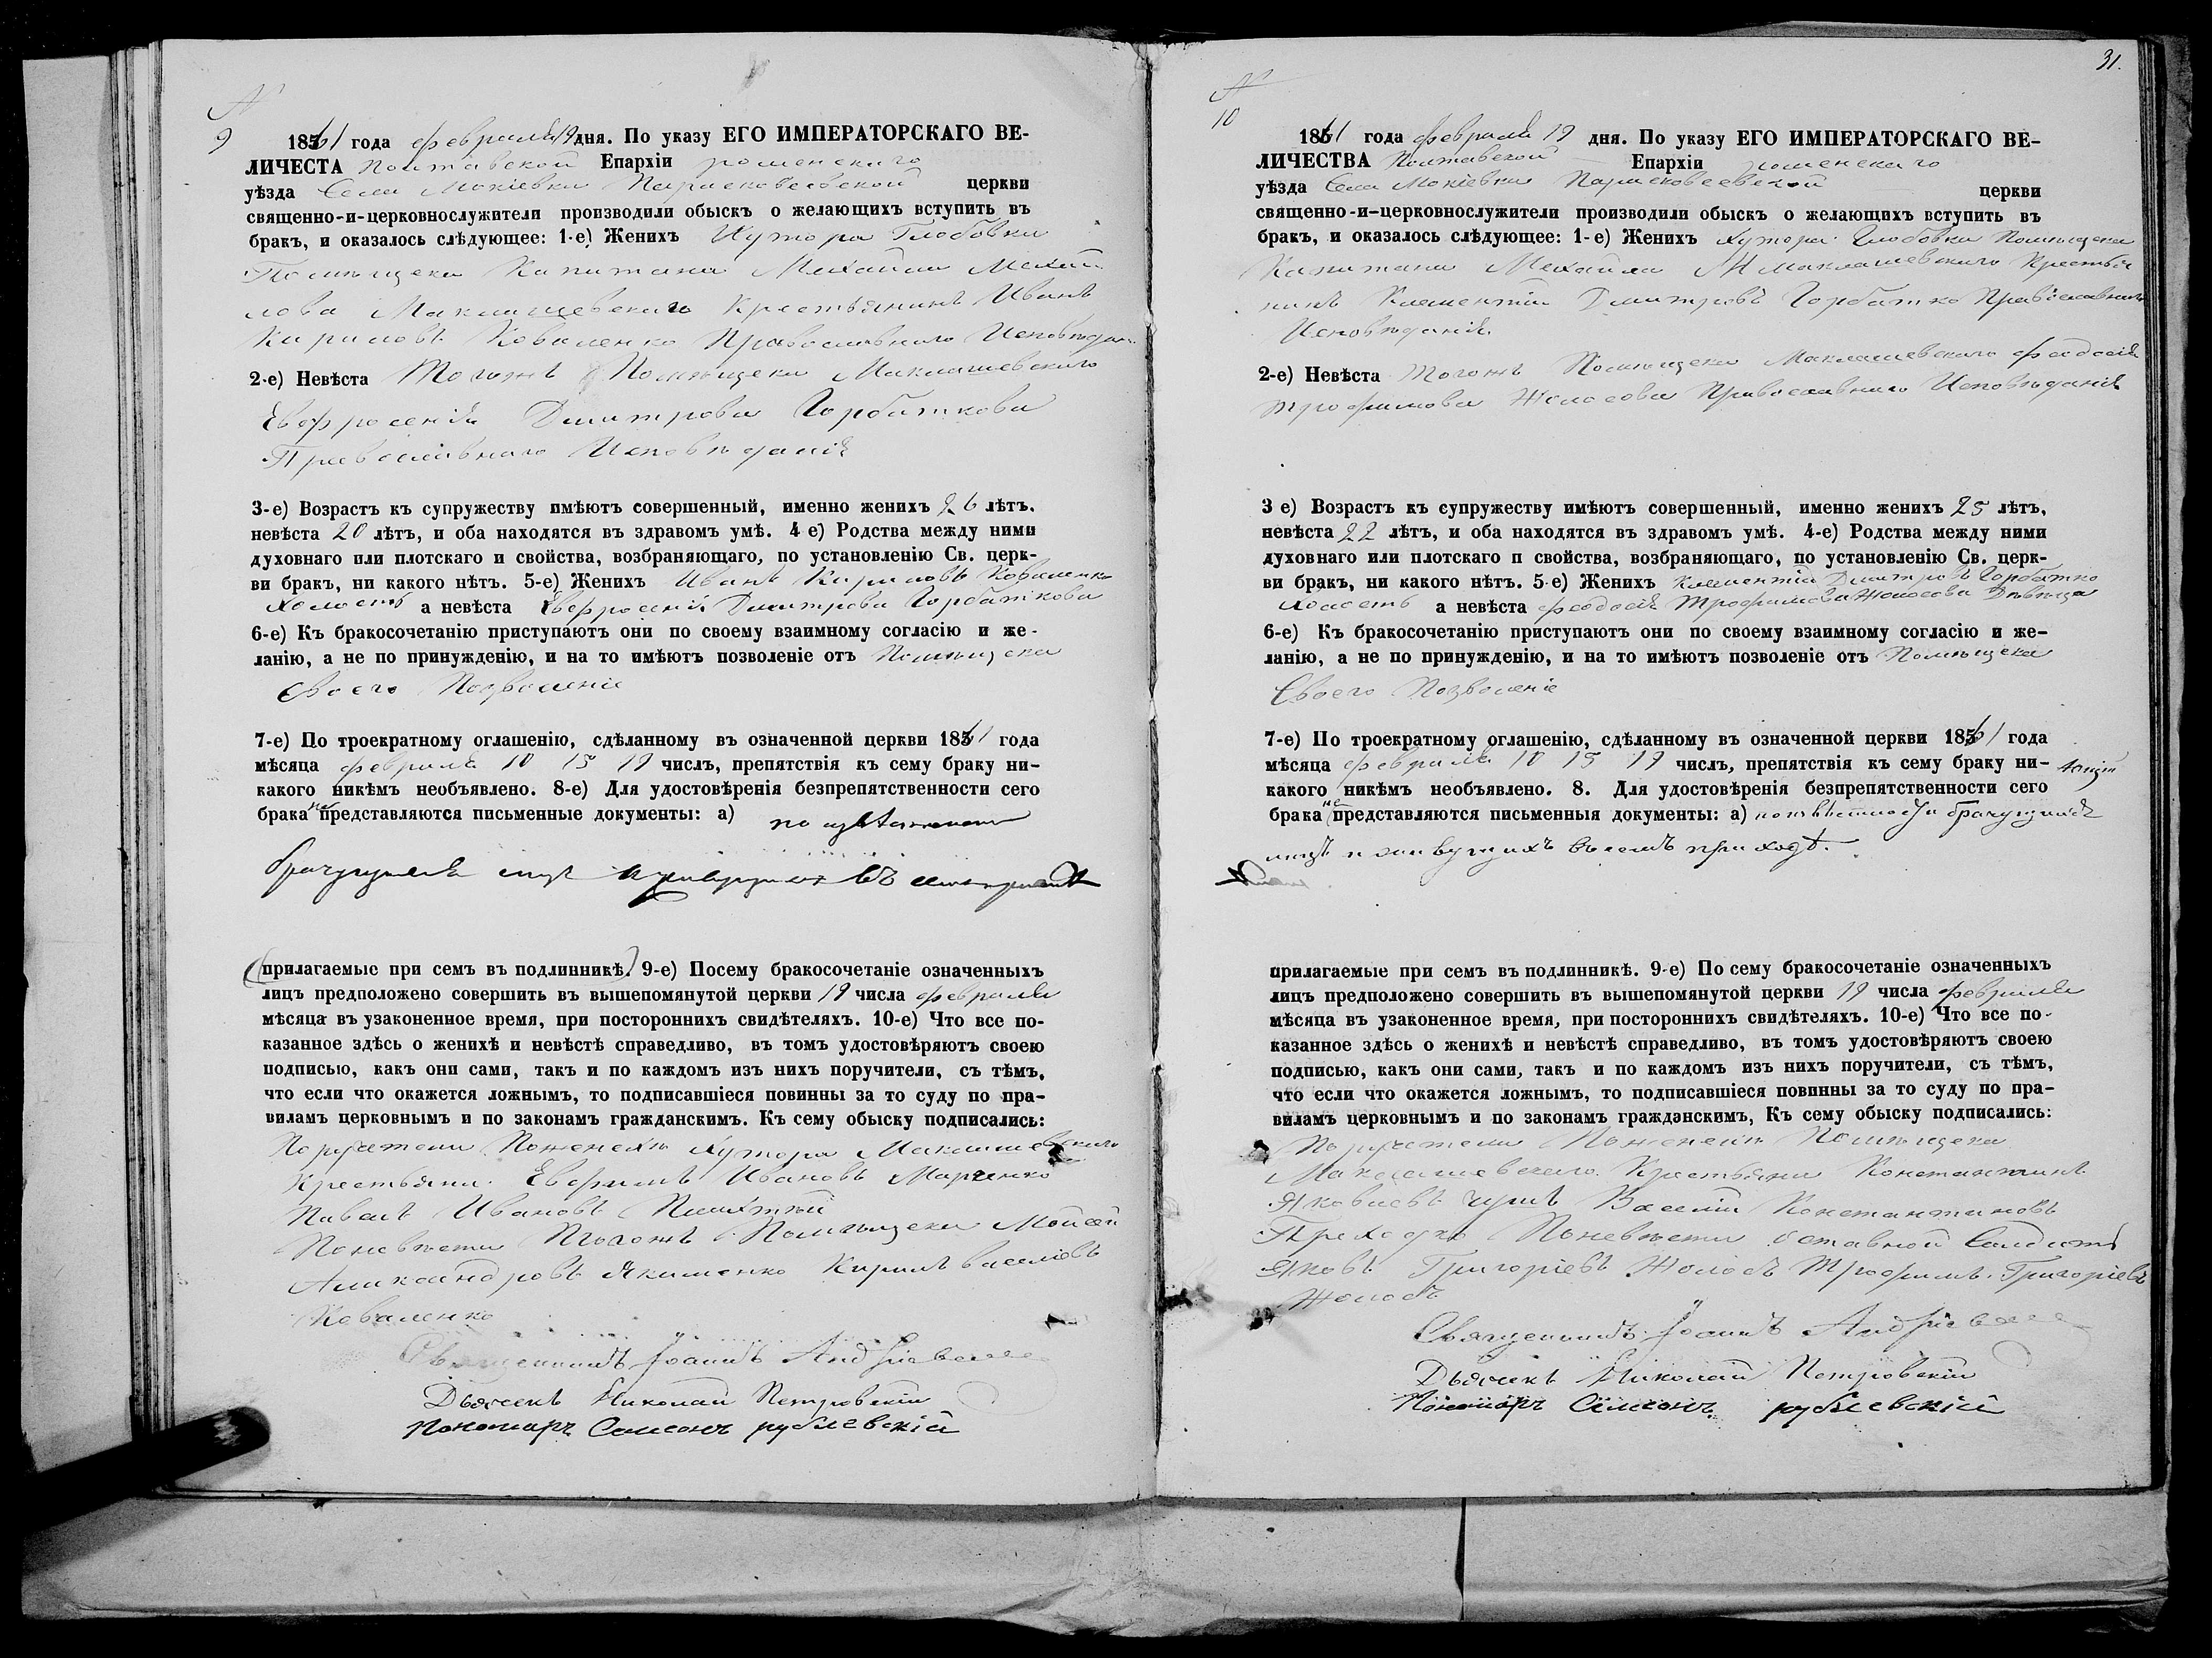 №
9
1861 года февраля 19 дня. По указу ЕГО ИМПЕРАТОРСКАГО ВЕ-
ЛИЧЕСТА Полтавской Епархіи роменскаго
уѣзда Села Мокіевки Параскевеевской церкви
священно-и-церковнослужители производили обыскъ о желающихъ вступить въ
бракъ, и оказалось слѣдующее: 1-е) Женихъ Хутора Глобовки
Помѣщека Капитана Михаила Михай
лова Маклашевскаго Крестьянинъ Иванъ
Кириловъ Коваленко Православнаго Исповѣдан
2-е) Невѣста Тогожъ Помѣщека Маклашевскаго
Евфросенія Дмитрова Горбаткова
Православнаго Исповѣданія
3-е) Возрастъ къ супружеству имѣютъ совершенный, именно женихъ 26 лѣтъ.
невѣста 20 лѣтъ, и оба находятся въ здравомъ умѣ. 4 е) Родства между ними
духовнаго или плотскаго и свойства, возбраняющаго, по установленію Св. церк-
ви бракъ, ни какого нѣтъ. 5-е) Женихъ Иванъ Кириловъ Коваленко
холостъ а невѣста Евфросенія Дмитрова Горбаткова
6-е) Къ бракосочетанію приступаютъ они по своему взаимному согласію и же-
ланію, а не по принужденію, и на то имѣютъ позволеніе отъ Помѣщека
Своего Позволеніе
7-е) По троекратному оглашенію, сдѣланному въ означенной церкви 1861 года
мѣсяца февраля 10 15 19 числъ, препятствія къ сему браку ни-
какого никѣмъ необъявлено. 8-е) Для удостовѣренія безпрепятственности сего
брака не представляются письменные документы: а) по
брачущихся лицъ въ
(прилагаемые при семъ въ подлинникѣ.) 9-е) Посему бракосочетаніе означенныхъ
лицъ предположено совершить въ вышепомянутой церкви 19 числа февраля
мѣсяца въ узаконенное время, при постороннихъ свидѣтеляхъ. 10-е) Что все по-
казанное здѣсь о женихѣ и невѣстѣ справедливо, въ томъ удостовѣряютъ своею
подписью, какъ они сами, такъ и по каждомъ изъ нихъ поручители, съ тѣмъ,
что если что окажется ложнымъ, то подписавшіеся повинны за то суду по пра-
виламъ церковнымъ и по законамъ гражданскимъ. Къ сему обыску подписались:
Поручатели Поженехѣ Хутора Маклашевскаго
Крестьяни Евфимъ Ивановъ Марченко
Павелъ Ивановъ
Поневѣсти Тогожъ Помѣщека Моисей
Александровъ Якименко Кирилъ Васелиевъ
Коваленко
Священникъ Іоаннъ Андріевскій
Дьячекъ Николай Петровскій
Пономарь Самсонъ рублевскій
31.
№
10
1861 года февраля 19 дня. По указу ЕГО ИМПЕРАТОРСКАГО ВЕ-
ЛИЧЕСТВА Полтавской Епархіи роменскаго
уѣзда Села Мокіевки Параскевеевской церкви
священно-и-церковнослужители производили обыскъ о желающихъ вступить въ
бракъ, и оказалось слѣдующее: 1-е) Женихъ Хутора Глобовки Помѣщека
Капитана Михаила М Маклашевскаго Крестья
нинъ Клементій Дмитровъ Горбатко Православнаго
Исповѣданія.
2-е) Невѣста Тогожъ Помѣщека Маклашевскаго Феодосія
Трофимова Жолосова Православнаго Исповѣданія
3 е) Возрастъ къ супружеству имѣютъ совершенный, именно женихъ 25 лѣтъ,
невѣста 22 лѣтъ, и оба находятся въ здравомъ умѣ. 4-е) Родства между ними
духовнаго или плотскаго п свойства, возбраняющаго, по установленію Св. церк-
ви бракъ, ни какого нѣтъ. 5-е) Женихъ Клементій Дмитровъ Горбатко
холостъ а невѣста Феодосія Трофимова Жолосова Дѣвица
6-е) Къ бракосочетанію приступаютъ они по своему взаимному согласію и же-
ланію, а не по принужденію, и на то имѣютъ позволеніе отъ Помѣщека
Своего Позволеніе
7-е) По троекратному оглашенію, сдѣланному въ означенной церкви 1861 года
мѣсяца февраля 10 15 19 числъ, препятствія къ сему браку ни-
какого никѣмъ необъявлено. 8. Для удостовѣренія безпрепятственности сего
брака не представляются письменныя документы: а) поизвѣстности брачущихся
лицъ и живущихъ въ семъ приходѣ.
прилагаемые при семъ въ подлинникѣ. 9-е) По сему бракосочетаніе означенныхъ
лицъ предположено совершить въ вышепомянутой церкви 19 числа февраля
мѣсяца въ узаконенное время, при постороннихъ свидѣтеляхъ. 10-е) Что все по-
казанное здѣсь о женихѣ и невѣстѣ справедливо, въ томъ удостовѣряютъ своею
подписью, какъ они сами, такъ и по каждомъ изъ нихъ поручители, съ тѣмъ,
что если что окажется ложнымъ, то подписавшіеся повинны за то суду по пра-
виламъ церковнымъ и по законамъ гражданскимъ, Къ сему обыску подписались:
Поручатели Поженехѣ Помѣщека
Маклашевскаго Крестьяни Константинъ
Яковлевъ Василій Константиновъ
Преходко Поневѣсти Отставной Солдатъ
Яковъ Григоріевъ Жолосъ Трофимъ Григоріевъ
Жолосъ
Священникъ Іоаннъ Андріевскій
Дьячекъ Николай Петровскій
Пономарь Самсонъ рублевскій